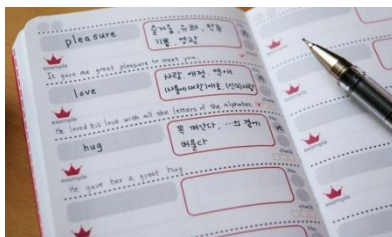 pleasure
즐거움, 유쾌, 만족
기쁨, 영광
example
It gave me great pleasure to meet you.
love
사랑, 애정, 연애
example
He loved his love with all the letters of the alphabet
check
hug
꼭 껴안다, …의 곁에
머물다
example
He gave her a great hug.
No.
check
example
example
example
example
example